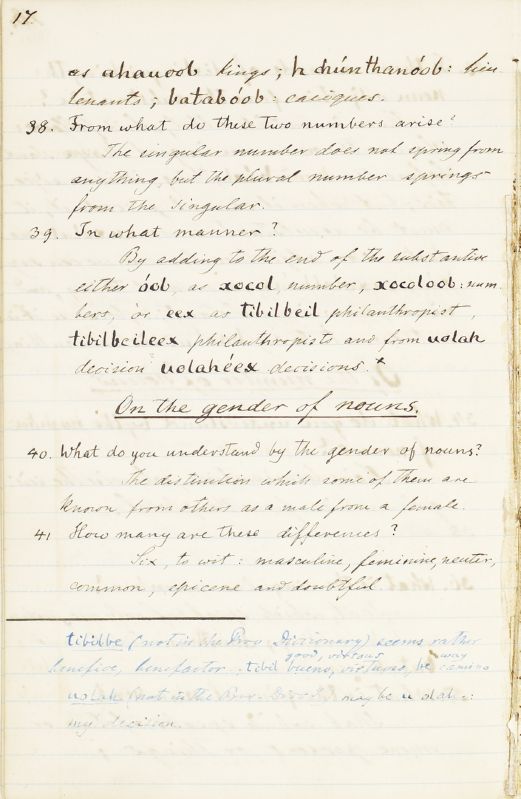 17.
as ahauoob kings; h chúnthanóob: lieu
tenants; batabóob: caciques.
38. From what do these two numbers arise?
The singular number does not spring from
anything but the plural number springs
from the singular.
39. In what manner?
By adding to the end of the substantive
either óob, as xocol, number, xocoloob: num
bers, or eex as tibilbeil philanthropist,
tibilbeileex philanthropists and from uolah
decision uolahéex decisions.*
On the gender of nouns.
40. What do you understand by the gender of nouns?
The distinction which some of them are
known from others as a male from a female.
41 How many are these differences?
Six, to wit: masculine, feminine, neuter,
common, epicene and doubtful
tibilbe (not in the Dictionary) seems rather
good, virtuous way
benefice, benefactor. tibil bueno, virtuoso, be camino
uolah (not in the maybe u olah:
my decision.